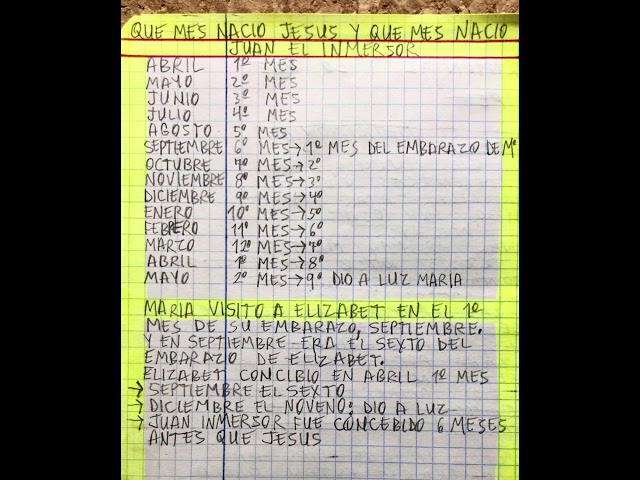 QUE MES NACIO JESUS Y QUE MES NACIO
JUAN EL INMERSOR
ABRIL 1º MES
MAYO 2º MES
JUNIO 3º MES
JULIO 4º MES
AGOSTO 5º MES
SEPTIEMBRE 6º MES→1º MES DEL EMBARAZO DE Mª
OCTUBRE 7º MES→2º
NOVIEMBRE 8º MES→3º
DICIEMBRE 9º MES→4º
ENERO 10º MES→5º
FEBRERO 11º MES→6º
MARZO 12º MES→7º
ABRIL 1º MES→8º
MAYO 2º MES→9º DIO A LUZ MARIA
MARIA VISITO A ELIZABET EN EL 1º
MES DE SU EMBARAZO, SEPTIEMBRE.
Y EN SEPTIEMBRE ERA EL SEXTO DEL
EMBARAZO DE ELIZABET.
ELIZABET CONCIBIO EN ABRIL 1º MES
→ SEPTIEMBRE EL SEXTO
→ DICIEMBRE EL NOVENO: DIO A LUZ
→ JUAN INMERSOR FUE CONCEBIDO 6 MESES
ANTES QUE JESUS